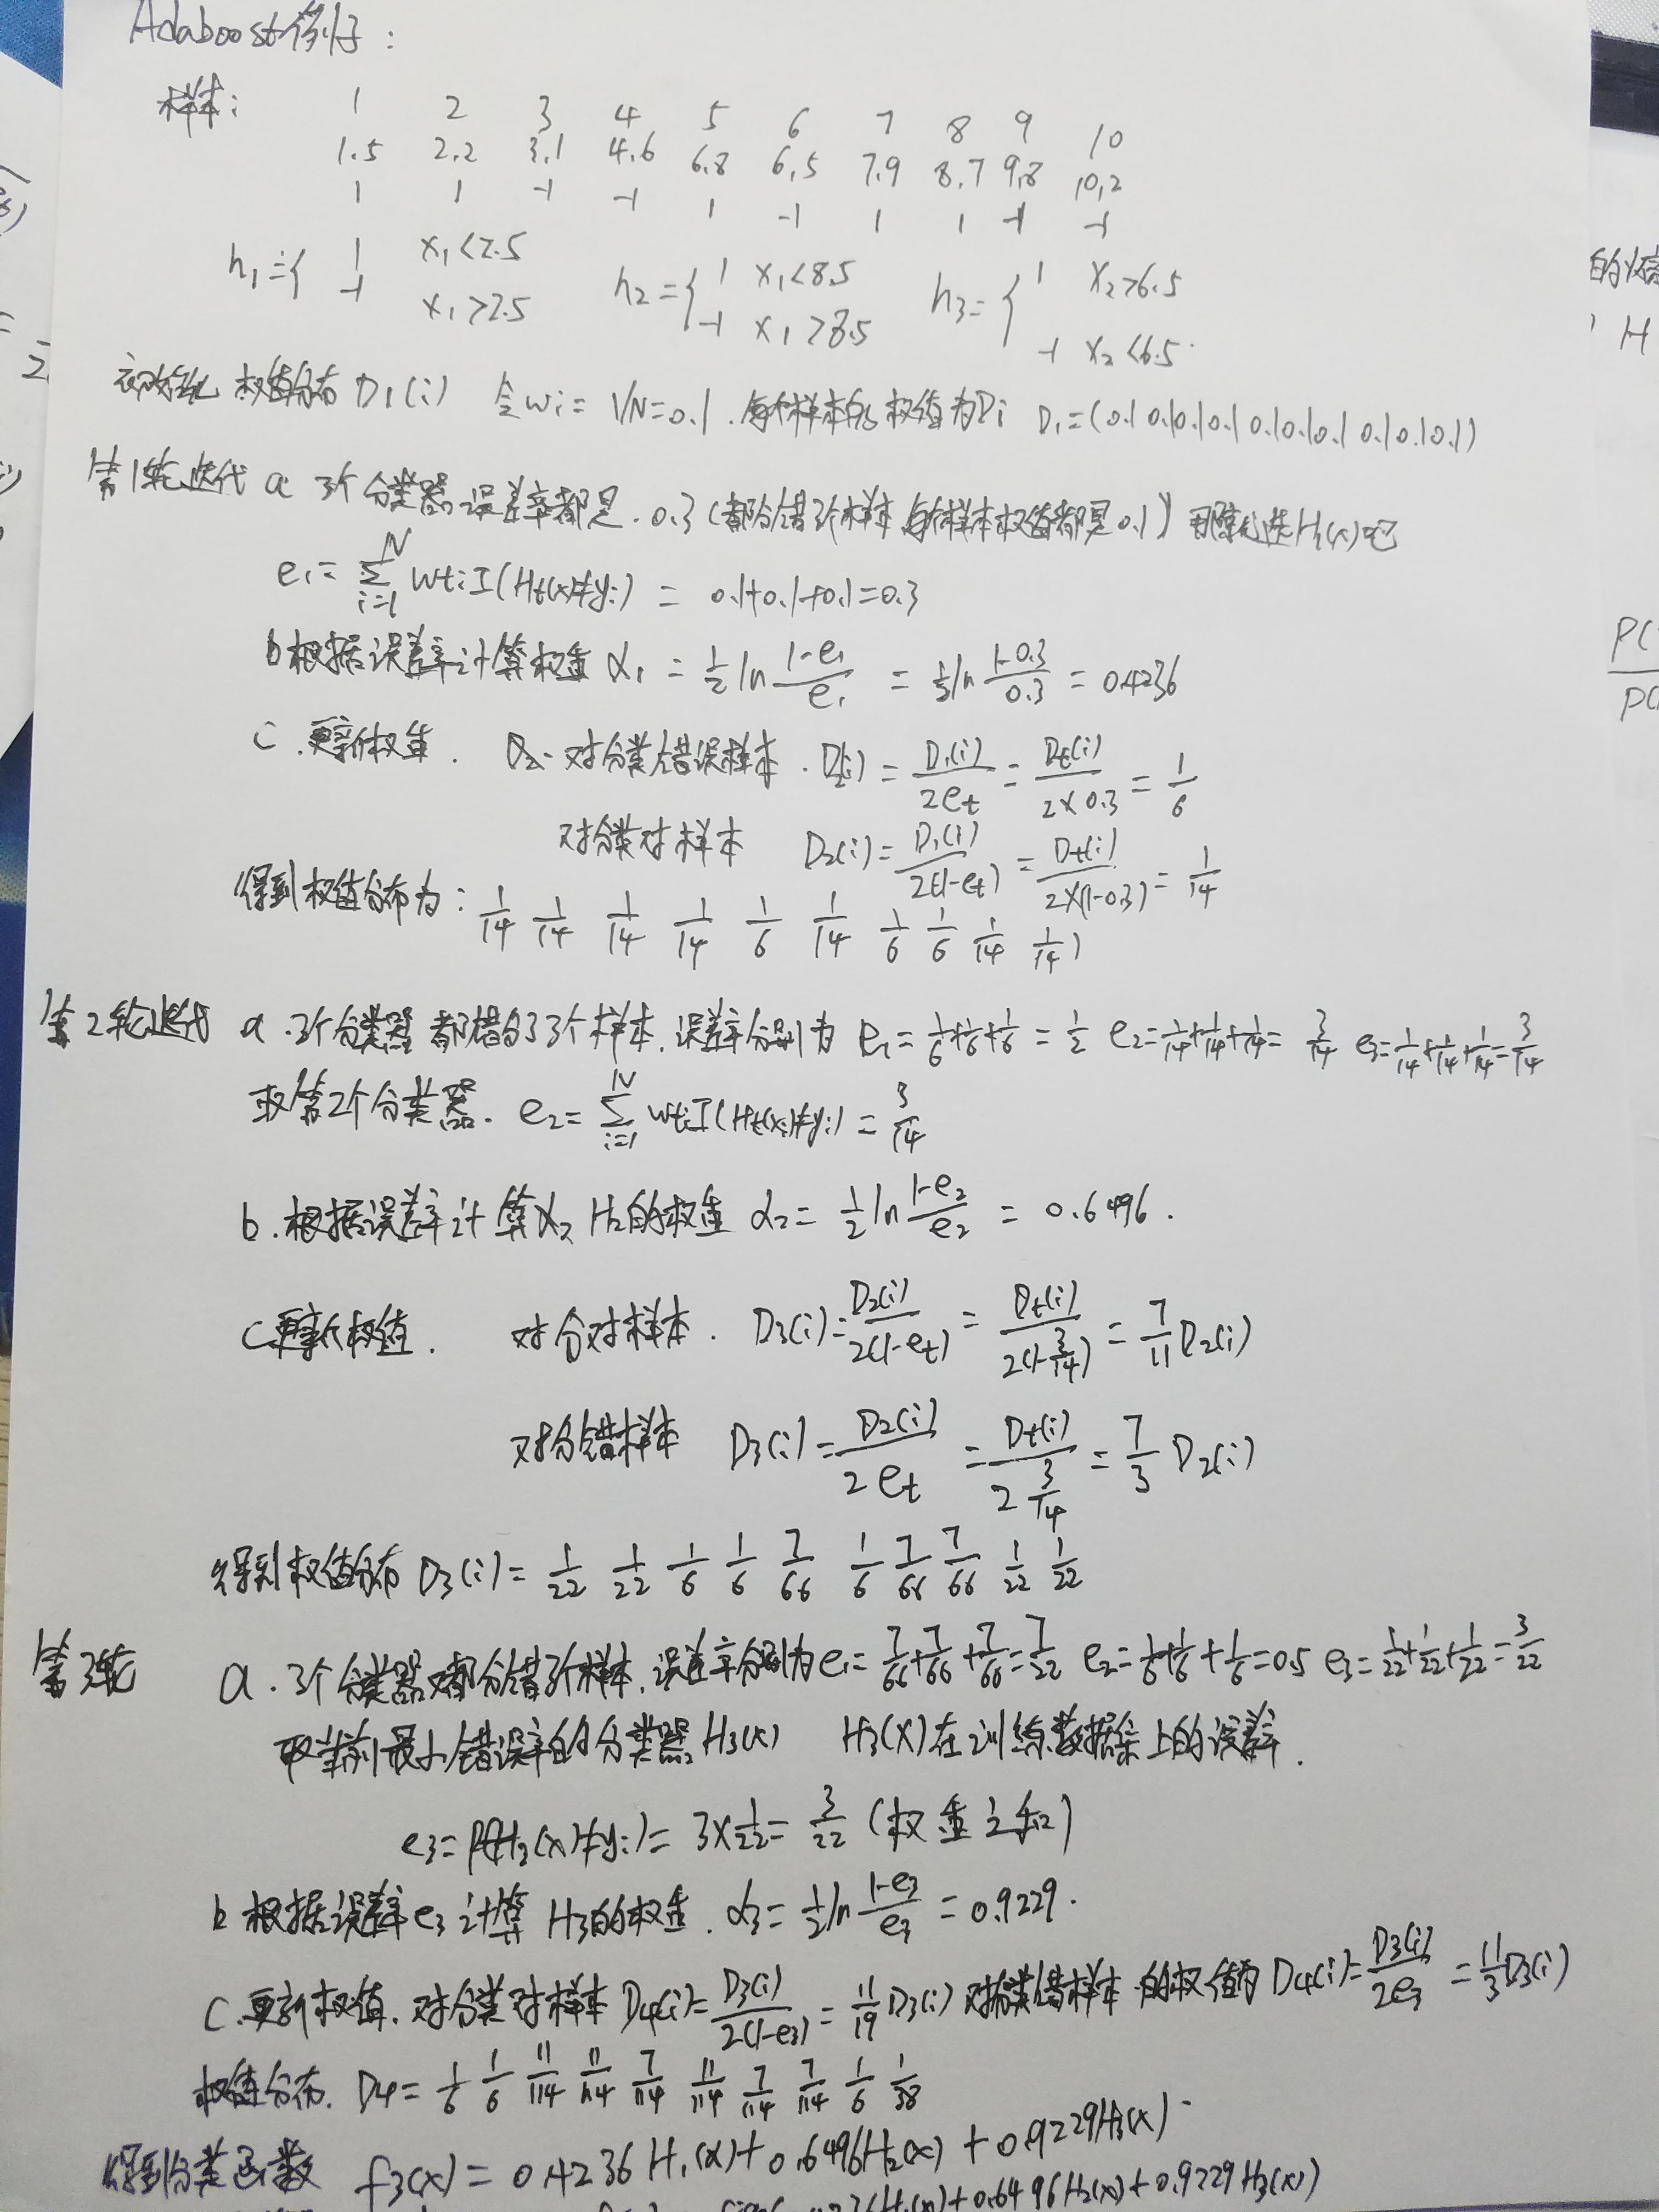 Adaboost例子:
样本: 1 2 3 4 5 6 7 8 9 10
1.5 2.2 3.1 4.6 6.8 6.5 7.9 8.7 9.8 10.2
1 1 -1 -1 1 -1 1 1 -1 -1
h₁={ 1 x₁<2.5 h₂={ 1 x₁<8.5 h₃={ 1 x₂>6.5
-1 x₁>2.5 -1 x₁>8.5 -1 x₂<6.5
初始化 权值分布D₁(i) 令wi=1/N=0.1. 每个样本的权值为Di D₁=(0.1 0.1 0.1 0.1 0.1 0.1 0.1 0.1 0.1 0.1)
第1轮迭代 a 3个分类器误差率都是.0.3(都分错3个样本 每个样本权值都是0.1) 选H₁(x)吧
e₁=Σ(i=1..N) wtiI(Ht(x)≠yi) = 0.1+0.1+0.1=0.3
b根据误差率计算权重 α₁ = 1/2 ln (1-e₁)/e₁ = 1/2 ln (1-0.3)/0.3 = 0.4236
C.更新权重. D₂.对分类错误样本.D₂(i) = D₁(i)/2et = Dt(i)/2×0.3 = 1/6
对分类对样本 D₂(i)=D₁(i)/2(1-et) = Dt(i)/2×(1-0.3) = 1/14
得到权值分布为: 1/14 1/14 1/14 1/14 1/6 1/14 1/6 1/6 1/14 1/14)
第2轮迭代 a.3个分类器都错分了3个样本.误差率分别为 e₁=1/6+1/6+1/6=1/2 e₂=1/14+1/14+1/14=3/14 e₃=1/14+1/14+1/14=3/14
取第2个分类器. e₂=Σ(i=1..N) wtiI(Ht(xi)≠yi) = 3/14
b.根据误差率计算α₂ H₂的权重 α₂=1/2 ln (1-e₂)/e₂ = 0.6496.
C更新权值. 对分对样本. D₃(i)=D₂(i)/2(1-et) = Dt(i)/2(1-3/14) = 7/11 D₂(i)
对分错样本 D₃(i)=D₂(i)/2et = Dt(i)/2 3/14 = 7/3 D₂(i)
得到权值分布D₃(i)= 1/22 1/22 1/6 1/6 7/66 1/6 7/66 7/66 1/22 1/22
第3轮 a.3个分类器都分错3个样本.误差率分别为e₁=7/66+7/66+7/66=7/22 e₂=1/6+1/6+1/6=0.5 e₃=1/22+1/22+1/22=3/22
取当前最小错误率的分类器H₃(x) H₃(x)在训练数据集上的误差率.
e₃=P(H₃(x)≠yi)=3×1/22=3/22 (权重之和)
b 根据误差率e₃计算H₃的权重.α₃=1/2 ln (1-e₃)/e₃ = 0.9229.
C.更新权值.对分类对样本D₄(i)=D₃(i)/2(1-e₃) = 11/19 D₃(i) 对分类错样本的权值为D₄(i)=D₃(i)/2e₃ = 11/3 D₃(i)
权值分布.D₄= 1/6 1/6 11/114 11/114 7/114 11/114 7/114 7/114 1/6 1/38
得到分类函数 f₃(x)=0.4236H₁(x)+0.6496H₂(x)+0.9229H₃(x).
H₁(x)+0.6496H₂(x)+0.9229H₃(x)